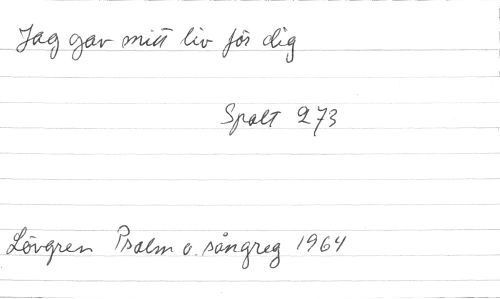 Jag gav mitt liv för dig
Spalt 273
Lövgren Psalm o. sångreg 1964